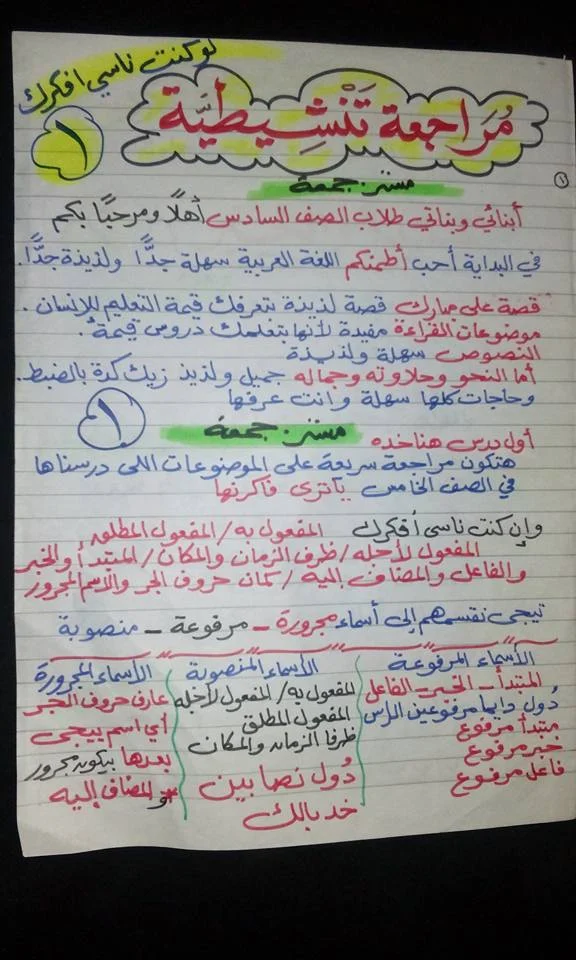 لو كنت ناسي افكرك
١
مُرَاجعة تَنْشِيطيَّة
مستر جمعة
١
أبنائي وبناتي طلاب الصف السادس أهلًا ومرحبًا بكم
في البداية أحب أطمنكم اللغة العربية سهلة جدًّا ولذيذة جدًّا.
قصة على مبارك قصة لذيذة بتعرفك قيمة التعليم للإنسان.
موضوعات القراءة مفيدة لأنها بتعلمك دروس قيمة.
النصوص سهلة ولذيذة
أما النحو وحلاوته وجماله جميل ولذيذ زيك كدة بالضبط.
وحاجات كلها سهلة وانت عرفها
١
مستر جمعة
أول درس هناخده
هتكون مراجعة سريعة على الموضوعات اللى درسناها
في الصف الخامس ياترى فاكرنها
وإن كنت ناسى أفكرك المفعول به / المفعول المطلق
المفعول لأجله / ظرف الزمان والمكان / المبتدأ والخبر
والفاعل والمضاف إليه / كمان حروف الجر والاسم المجرور
تيجى نقسمهم إلى أسماء مجرورة - مرفوعة - منصوبة
الأسماء المرفوعة
المبتدأ - الخبر - الفاعل
دُول دايما مرفوعين الراس
مبتدأ مرفوع
خبر مرفوع
فاعل مرفوع
الأسماء المنصوبة
المفعول به / المفعول لأجله
المفعول المطلق
ظرفا الزمان والمكان
دُول نصابين
خد بالك
الأسماء المجرورة
عارف حروف الجر
أي اسم ييجى
بعدها بيكون مجرور
و المضاف إليه